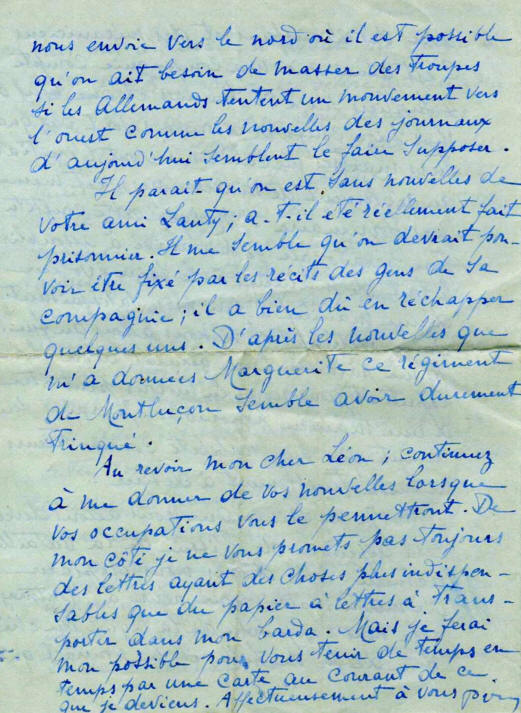 nous envoie vers le nord où il est possible
qu'on ait besoin de masser des troupes
si les Allemands tentent un mouvement vers
l'ouest comme les nouvelles des journaux
d'aujourd'hui semblent le faire supposer.
Il parait qu'on est sans nouvelles de
votre ami Lanty ; a-t-il été réellement fait
prisonnier. Il me semble qu'on devrait pou-
voir être fixé par les récits des gens de sa
compagnie ; il a bien dû en réchapper
quelques uns. D'après les nouvelles que
m'a données Marguerite ce régiment
de Montluçon semble avoir durement
trinqué.
Au revoir mon cher Léon ; continuez
à me donner de vos nouvelles lorsque
vos occupations vous le permettront. De
mon côté je ne vous promets pas toujours
des lettres ayant des choses plus indispen-
sables que du papier à lettres à trans-
porter dans mon barda. Mais je ferai
mon possible pour vous tenir de temps en
temps par une carte au courant de ce
que je deviens. Affectueusement à vous